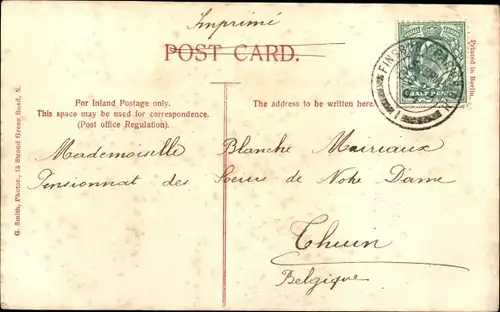 Imprimé
POST CARD.
For Inland Postage only.
This space may be used for correspondence.
(Post office Regulation).
The address to be written here.
Mademoiselle Blanche Mairiaux
Pensionnat des Soeurs de Notre Dame
Thuin
Belgique
G. Smith, Photor., 15 Stroud Green Road, N.
Printed in Berlin.
FINSBURY PARK
HALF PENNY